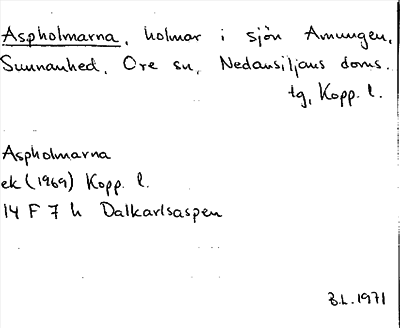 Aspholmarna, holmar i sjön Amungen,
Sunnanhed, Ore sn, Nedansiljans doms.
tg, Kopp. l.
Aspholmarna
ek (1969) Kopp. l.
14 F 7 h Dalkarlsaspen
B.L. 1971